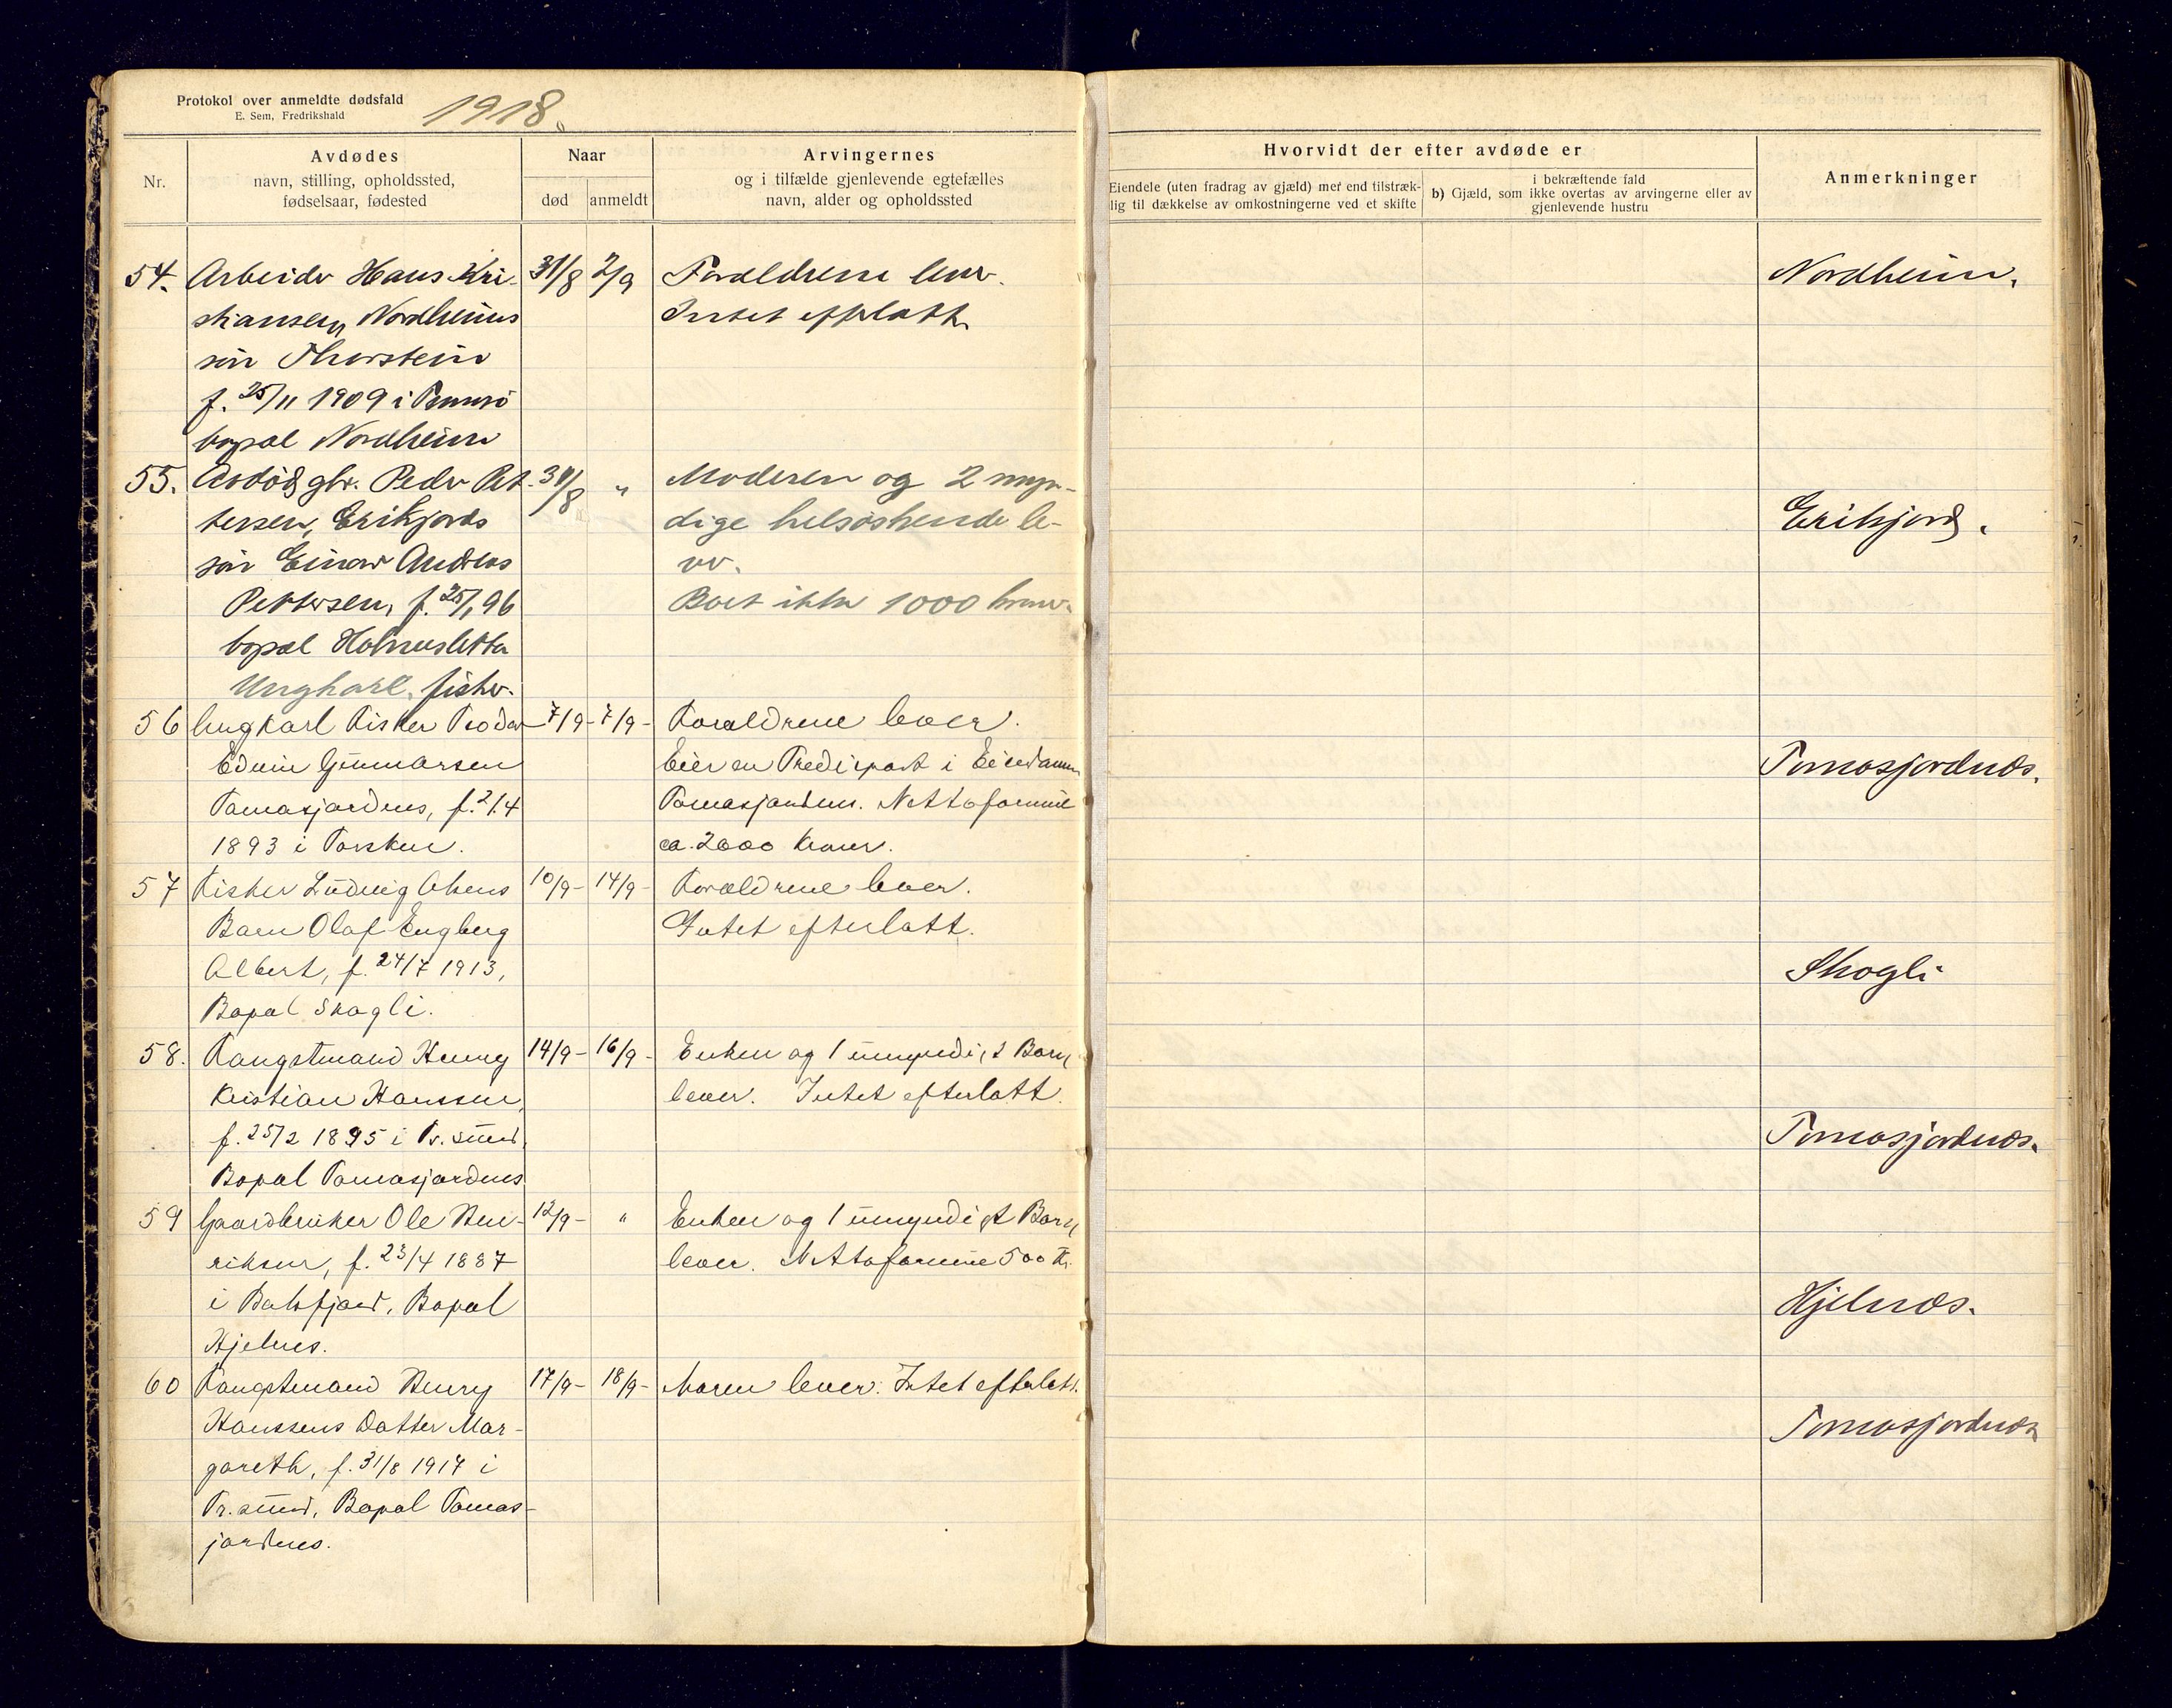 Protokol over anmeldte dødsfald
E. Sem, Fredrikshald
1918.
Nr.
Avdødes
navn, stilling, opholdssted,
fødselsaar, fødested
Naar
død
anmeldt
Arvingernes
og i tilfælde gjenlevende egtefælles
navn, alder og opholdssted
Hvorvidt der efter avdøde er
Eiendele (uten fradrag av gjæld) mer end tilstræk-
lig til dækkelse av omkostningerne ved et skifte
i bekræftende fald
b) Gjæld, som ikke overtas av arvingerne eller av
gjenlevende hustru
Anmerkninger
54. Arbeider Hans Kri- 31/8 2/9 Forældrene lever. Nordheim.
stiansen, Nordheims Intet efterlatt.
søn Thorstein
f. 25/11 1909 i Tromsø
bopæl Nordheim
55. Avdøde gbr. Peder Pet- 31/8 " Moderen og 2 myn-
tersen, Erikjords dige helsøskende le- Erikjord.
søn Einar Andreas ver.
Pettersen, f. 25/1 96 Boet ikke 1000 kroner.
bopæl Holmesletta
Ungkarl, fisker.
56 Ungkarl Fisker Teodor 7/9- 7/9- Forældrene lever.
Edvin Gunnarsen Eier en Tredjepart i Eiendommen Tomasjordnæs.
Tomasjordnes, f. 2/4 Tomasjordnes. Nettoformue
1893 i Torsken. ca. 2000 Kroner.
57 Fisker Ludvig Olsens 10/9- 14/9- Forældrene lever.
Barn Olaf Engberg Intet efterlatt.
Albert, f. 24/7 1913, Skogli
Bopæl Skogli.
58. Fangstmand Henry 14/9- 16/9- Enken og 1 umyndigt Barn
Kristian Hanssen, lever. Intet efterlatt.
f. 25/2 1895 i Tr. sund, Tomasjordnæs.
Bopæl Tomasjordnes
59 Gaardbruker Ole Hen- 12/9- " Enken og 1 umyndigt Barn
riksen, f. 23/4 1887 lever. Nettoformue 500 Kr.
i Balsfjord, Bopæl Hjelnæs.
Hjelnes.
60 Fangstmand Henry 17/9- 18/9- Moren lever. Intet efterlatt.
Hanssens Datter Mar- Tomasjordnæs
gareth, f. 31/8 1917 i
Tr. sund, Bopæl Tomas-
jordnes.